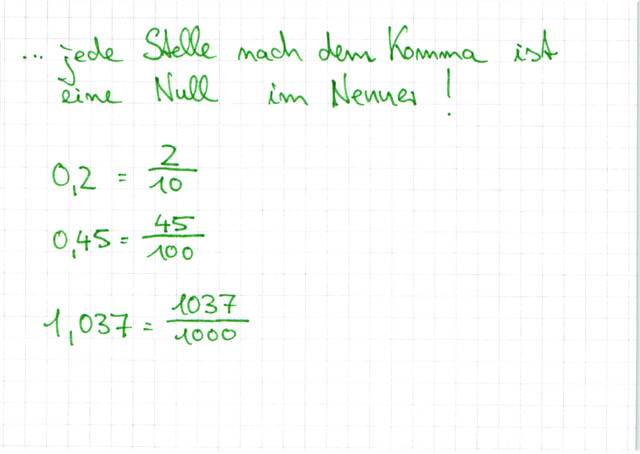 ... jede Stelle nach dem Komma ist
eine Null im Nenner !
0,2 = 2/10
0,45 = 45/100
1,037 = 1037/1000